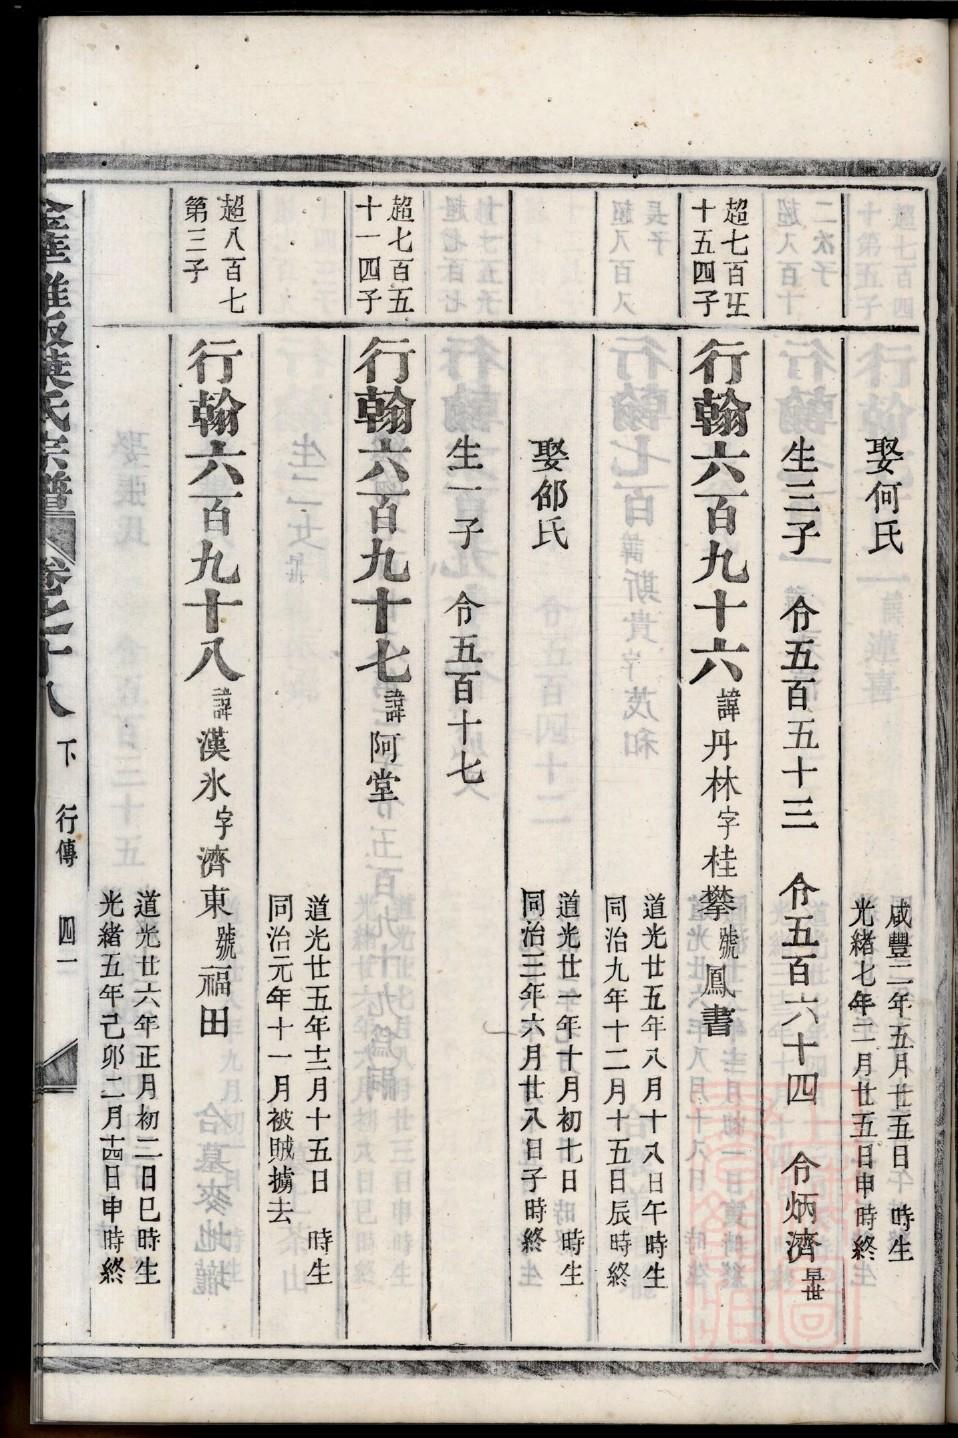 娶何氏
咸豐二年五月廿五日 時生
光緒七年二月廿五日申時終
生三子 令五百五十三 令五百六十四 令炳濟早世
超七百五
十五四子
行翰六百九十六諱丹林字桂攀號鳳書
道光廿五年八月十八日午時生
同治九年十二月十五日辰時終
娶邰氏
道光廿一年十月初七日 時生
同治三年六月廿八日子時終
生一子 令五百十七
超七百五
十一四子
行翰六百九十七諱阿堂
道光廿五年十二月十五日 時生
同治元年十一月被賊擄去
超八百七
第三子
行翰六百九十八諱漢氷字濟東號福田
道光廿六年正月初二日巳時生
光緒五年己卯二月十四日申時終
葉氏宗譜 卷之十八 下 行傳 四一